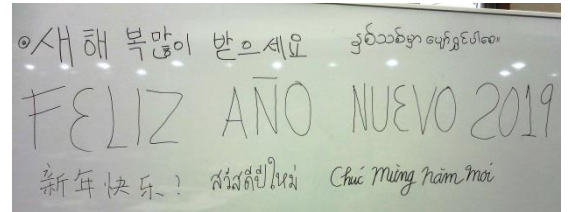 새해 복많이 받으세요 နှစ်သစ်မှာ ပျော်ရွှင်ပါစေ။
FELIZ AÑO NUEVO 2019
新年快乐! สวัสดีปีใหม่ Chúc mừng năm mới